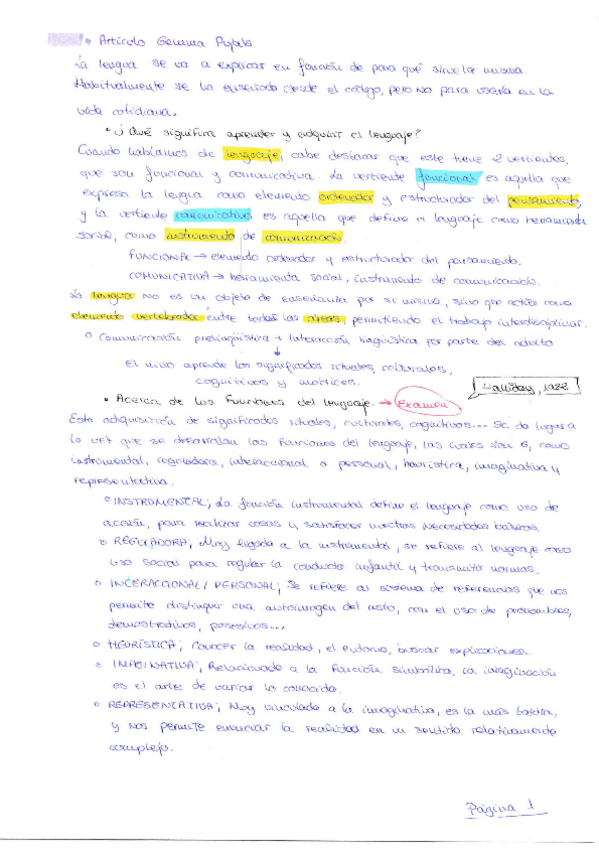 • Artículo Gemma Pujals
La lengua se va a explicar en función de para qué sirve la misma.
Habitualmente se ha enseñado desde el código, pero no para usarla en la
vida cotidiana.
• ¿Qué significa aprender y adquirir el lenguaje?
Cuando hablamos de lenguaje, cabe destacar que este tiene 2 vertientes,
que son funcional y comunicativa. La vertiente funcional es aquella que
expresa la lengua como elemento ordenador y estructurador del pensamiento,
y la vertiente comunicativa es aquella que define el lenguaje como herramienta
social, como instrumento de comunicación.
FUNCIONAL → elemento ordenador y estructurador del pensamiento.
COMUNICATIVA → herramienta social, instrumento de comunicación.
La lengua no es un objeto de enseñanza por si misma, sino que actúa como
elemento vertebrador entre todas las áreas, permitiendo el trabajo interdisciplinar.
○ Comunicación prelingüística + Interacción lingüística por parte del adulto
↓
El niño aprende los significados rituales, culturales,
cognitivos y motrices.
Halliday, 1982
• Acerca de las Funciones del lenguaje. → examen
Esta adquisición de significados rituales, culturales, cognitivos... Se da lugar a
lo que se desarrollan las funciones del lenguaje, las cuales son 6, como
instrumental, reguladora, interaccional o personal, heurística, imaginativa y
representativa.
○ INSTRUMENTAL; La función instrumental define el lenguaje como uso de
acción, para realizar cosas y satisfacer nuestras necesidades básicas.
○ REGULADORA, Muy ligada a la instrumental, se refiere al lenguaje como
uso social para regular la conducta infantil y transmitir normas.
○ INTERACCIONAL / PERSONAL; Se refiere al sistema de referencias que nos
permite distinguir una autoimagen del resto, con el uso de pronombres,
demostrativos, posesivos...
○ HEURÍSTICA; Conocer la realidad, el entorno, buscar explicaciones.
○ IMAGINATIVA; Relacionado a la función simbólica, la imaginación
es el arte de variar lo conocido.
○ REPRESENTATIVA; Muy vinculada a la imaginativa, es la más tardía,
y nos permite enunciar la realidad en un sentido relativamente
complejo.
Página 1